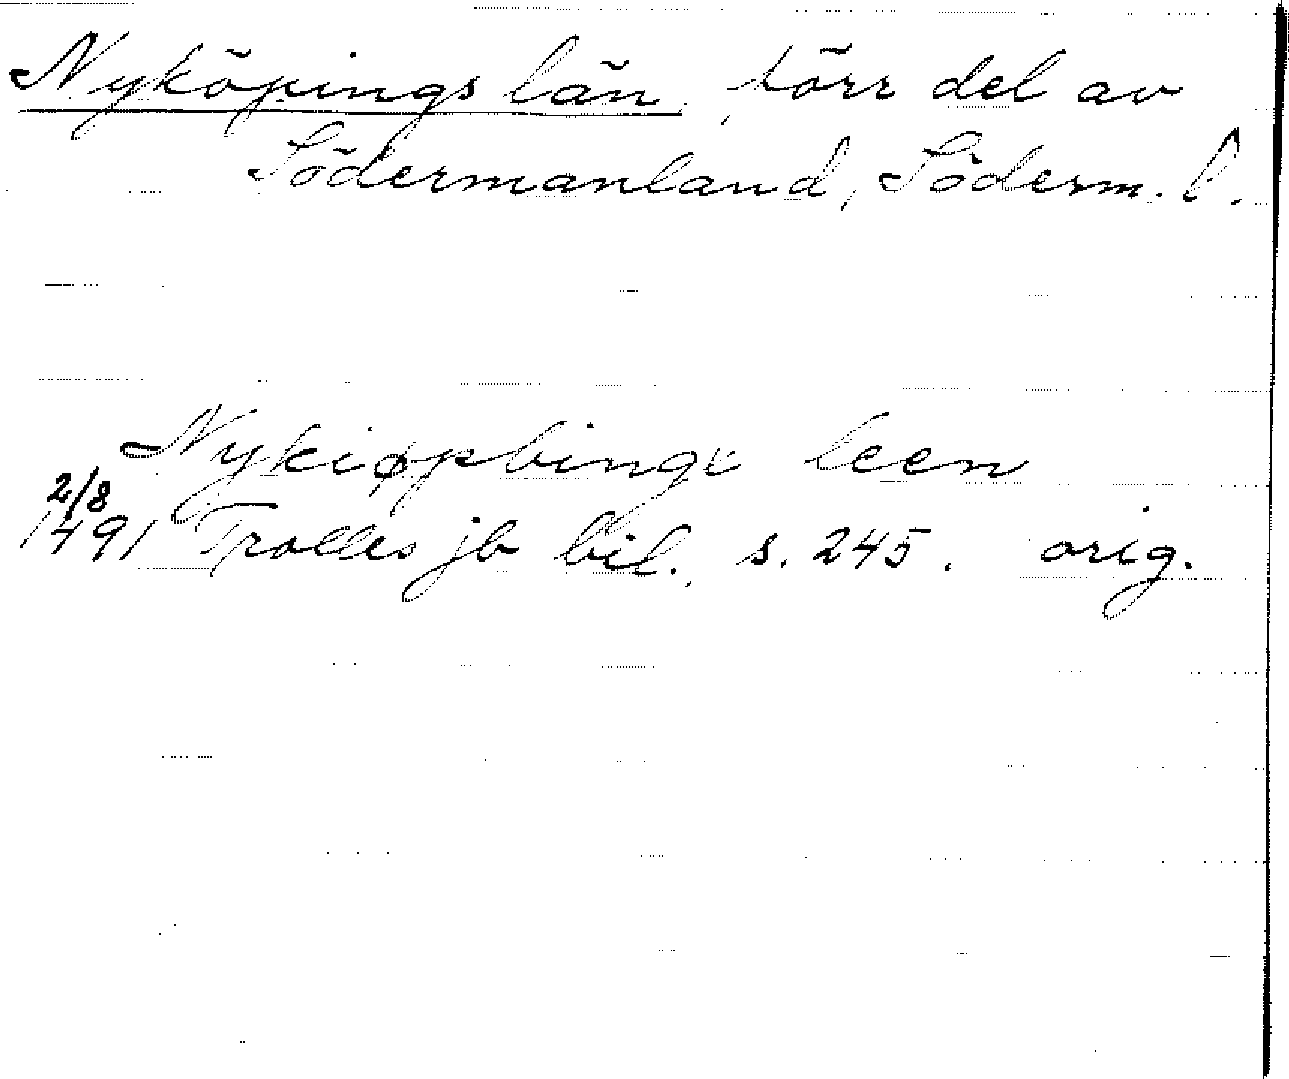 Nyköpings län, förr del av
Södermanland, Söderm. l.
Nykiøpbings leen
2/8
1491 Trolles jb bil. s. 245. orig.